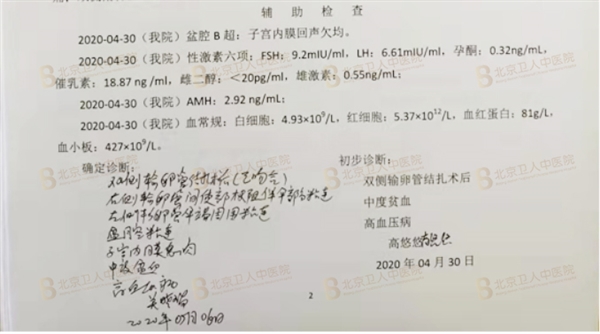 辅 助 检 查
2020-04-30（我院）盆腔 B 超：子宫内膜回声欠均。
2020-04-30（我院）性激素六项：FSH：9.2mIU/ml，LH：6.61mIU/ml，孕酮：0.32ng/mL，
催乳素：18.87 ng /ml，雌二醇：＜20pg/ml，雄激素：0.55ng/mL；
2020-04-30（我院）AMH：2.92 ng/mL；
2020-04-30（我院）血常规：白细胞：4.93×10⁹/L，红细胞：5.37×10¹²/L，血红蛋白：81g/L，
血小板：427×10⁹/L。
确定诊断：
双侧输卵管 （已吻合）
右侧输卵管间质部梗阻伴伞部粘连
左侧 周围粘连
盆腔粘连
子宫内膜息肉
中度贫血
高血压病
2020年05月06日
初步诊断：
双侧输卵管结扎术后
中度贫血
高血压病
高悠悠
2020 年 04 月 30 日
2
北京卫人中医院